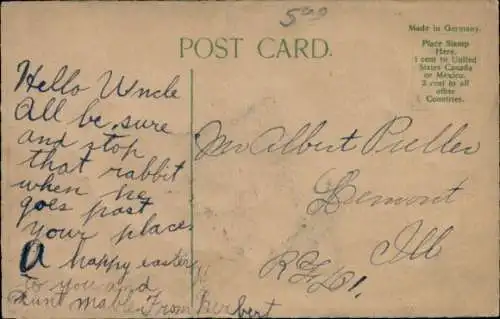 5.00
POST CARD.
Made in Germany.
Place Stamp
Here.
1 cent to United
States Canada
or Mexico.
2 cent to all
other
Countries.
Hello Uncle
All be sure
and stop
that rabbit
when he
goes past
your place
A happy easter
to you and
Aunt Mable From Herbert
Mr Albert Puller
Lemont
Ill
R.F.D.1.